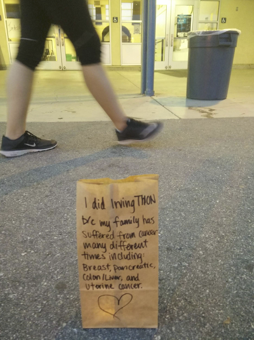 I did IrvingTHON
b/c my family has
suffered from cancer
many different
times including:
Breast, pancreatic,
Colon/Liver, and
uterine cancer.